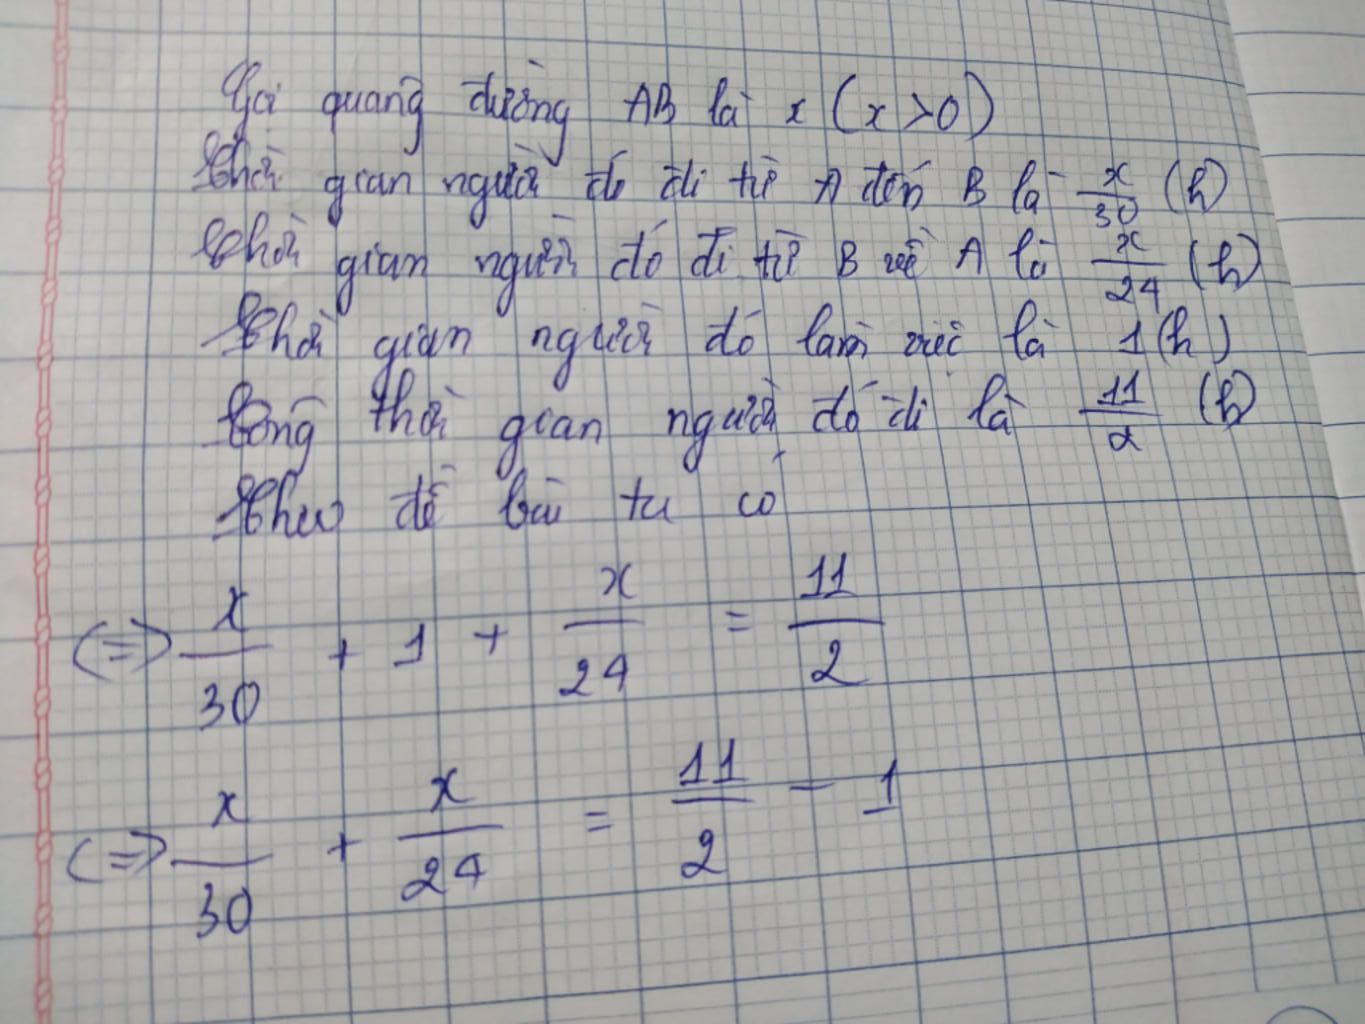 Gọi quãng đường AB là x (x > 0)
Thời gian người đó đi từ A đến B là x/30 (h)
Thời gian người đó đi từ B về A là x/24 (h)
Thời gian người đó làm việc là 1 (h)
Tổng thời gian người đó đi là 11/2 (h)
Theo đề bài ta có
<=> x/30 + 1 + x/24 = 11/2
<=> x/30 + x/24 = 11/2 - 1